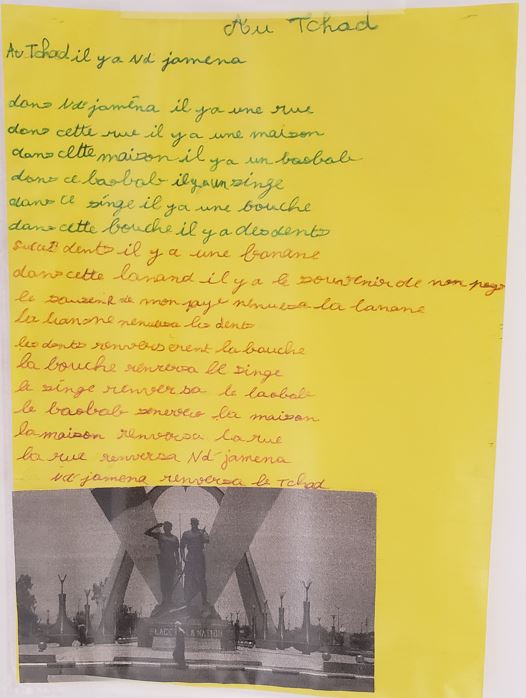 Au Tchad
Au Tchad il y a Nd jamena
dans Nd jaména il y a une rue
dans cette rue il y a une maison
dans cette maison il y a un baobab
dans ce baobab il y a un singe
dans ce singe il y a une bouche
dans cette bouche il y a des dents
dents il y a une banane
dans cette banand il y a le souvenir de mon pays
le souvenir de mon paye renversa la banane
la banane renversa les dents
les dents renversèrent la bouche
la bouche renversa le singe
le singe renversa le baobab
le baobab la maison
la maison renversa la rue
la rue renversa Nd jamena
Nd jamena renversa le Tchad
PLACE LA NATION